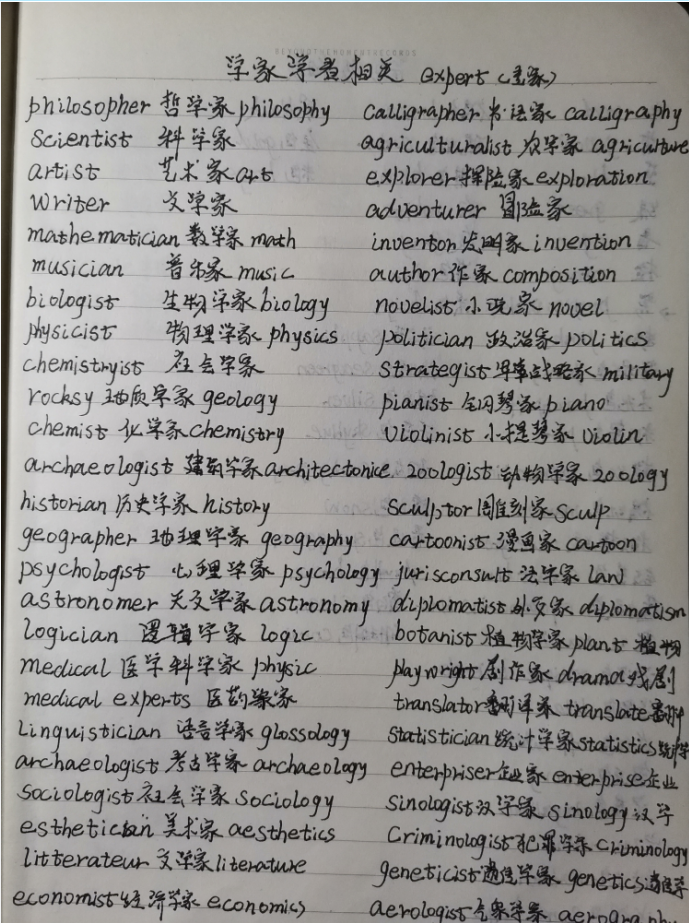 学家学者相关 expert (专家)
philosopher 哲学家 philosophy
scientist 科学家
artist 艺术家 art
writer 文学家
mathematician 数学家 math
musician 音乐家 music
biologist 生物学家 biology
physicist 物理学家 physics
chemistryist 社会学家
rocksy 地质学家 geology
chemist 化学家 chemistry
archaeologist 建筑学家 architectonice
historian 历史学家 history
geographer 地理学家 geography
psychologist 心理学家 psychology
astronomer 天文学家 astronomy
logician 逻辑学家 logic
medical 医学科学家 physic
medical experts 医药家
Linguistician 语言学家 glossology
archaeologist 考古学家 archaeology
sociologist 社会学家 sociology
esthetician 美术家 aesthetics
litterateur 文学家 literature
economist 经济学家 economics
calligrapher 书法家 calligraphy
agriculturalist 农学家 agriculture
explorer 探险家 exploration
adventurer 冒险家
inventor 发明家 invention
author 作家 composition
novelist 小说家 novel
politician 政治家 politics
strategist 军事战略家 military
pianist 钢琴家 piano
violinist 小提琴家 violin
zoologist 动物学家 zoology
sculptor 雕刻家 sculp
cartoonist 漫画家 cartoon
jurisconsult 法学家 law
diplomatist 外交家 diplomatism
botanist 植物学家 plant 植物
playwright 剧作家 drama 戏剧
translator 翻译家 translate 翻译
statistician 统计学家 statistics 统计学
enterpriser 企业家 enterprise 企业
Sinologist 汉学家 sinology 汉学
Criminologist 犯罪学家 criminology
geneticist 遗传学家 genetics 遗传学
aerologist 气象学家